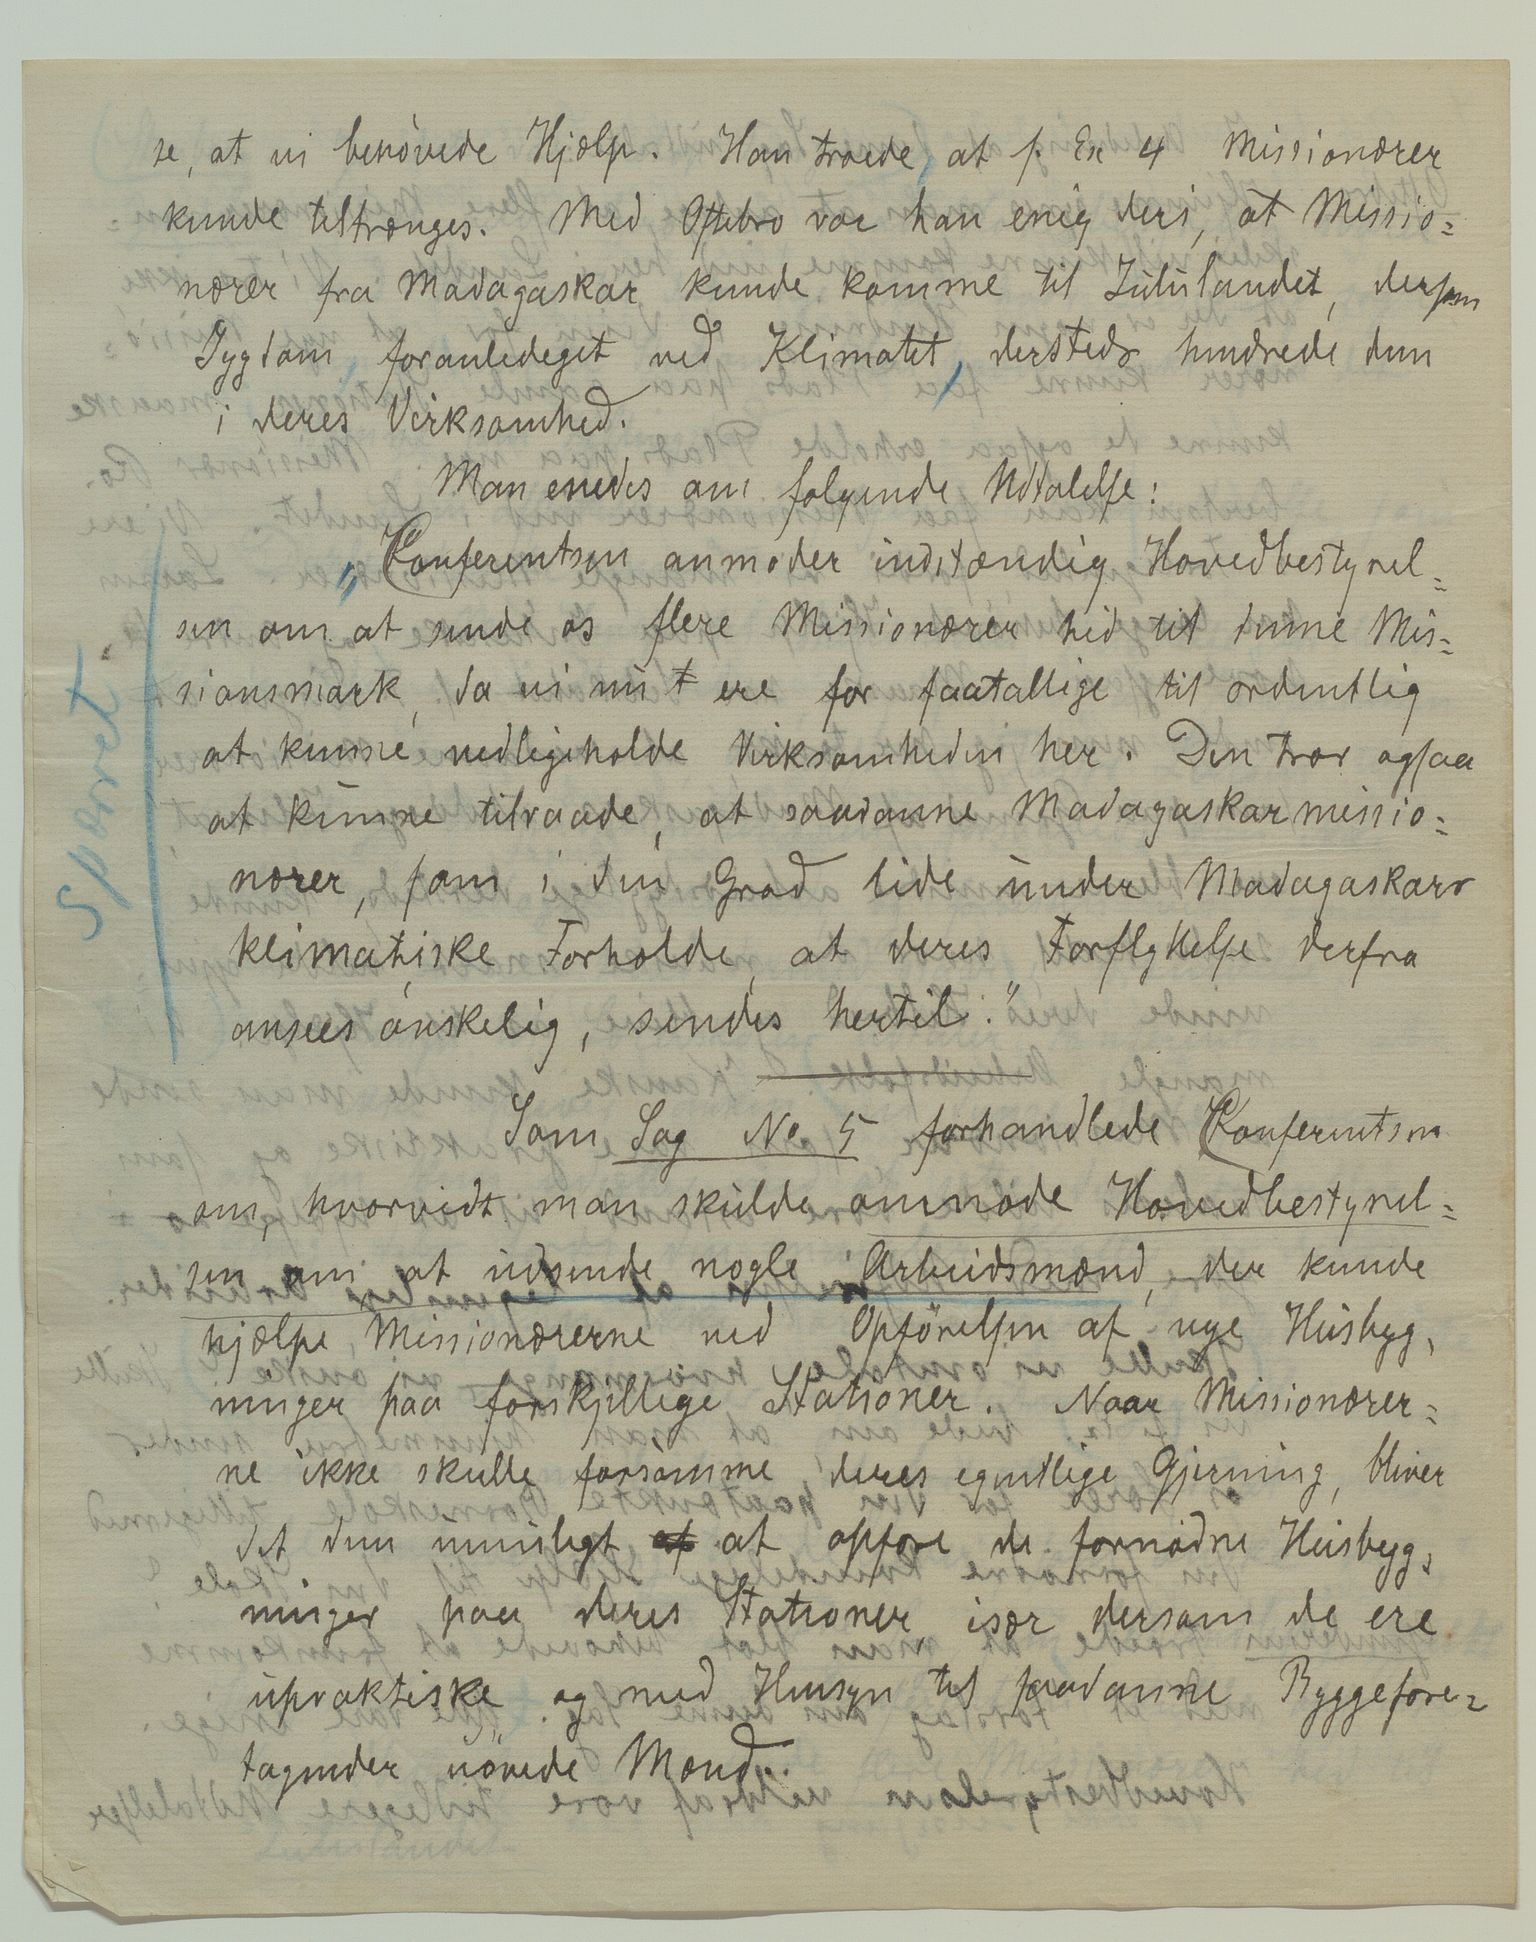 se, at vi behøvede Hjælp. Han troede, at f. Ex 4 Missionærer
kunde tiltrænges. Med Oftebro var han enig deri, at Missio-
nærer fra Madagaskar kunde komme til Zululandet, dersom
Sygdom, foranlediget ved Klimatet, dersteds hindrede dem
i deres Virksomhed.
Man enedes om følgende Udtalelse:
„Conferentsen anmoder indstændig Hovedbestyrel-
sen om at sende os flere Missionærer hid til denne Mis-
sionsmark, da vi nu ere for faatallige til ordentlig
at kunne vedligeholde Virksomheden her. Den tror ogsaa
at kunne tilraade, at saadanne Madagaskarmissio-
nærer, som i den Grad lide under Madagaskars
klimatiske Forholde, at deres Forflyttelse derfra
ansees ønskelig, sendes hertil."
Spærret.
Som Sag No 5 forhandlede Conferentsen
om, hvorvidt man skulde anmode Hovedbestyrel-
sen om at udsende nogle Arbeidsmænd, der kunde
hjælpe Missionærerne ved Opførelsen af nye Husbyg-
ninger paa forskjellige Stationer. Naar Missionærer-
ne ikke skulle forsømme deres egentlige Gjerning, bliver
det dem umuligt at opføre de fornødne Husbyg-
ninger paa deres Stationer, især dersom de ere
upraktiske og med Hensyn til saadanne Byggefore-
tagender uøvede Mænd.